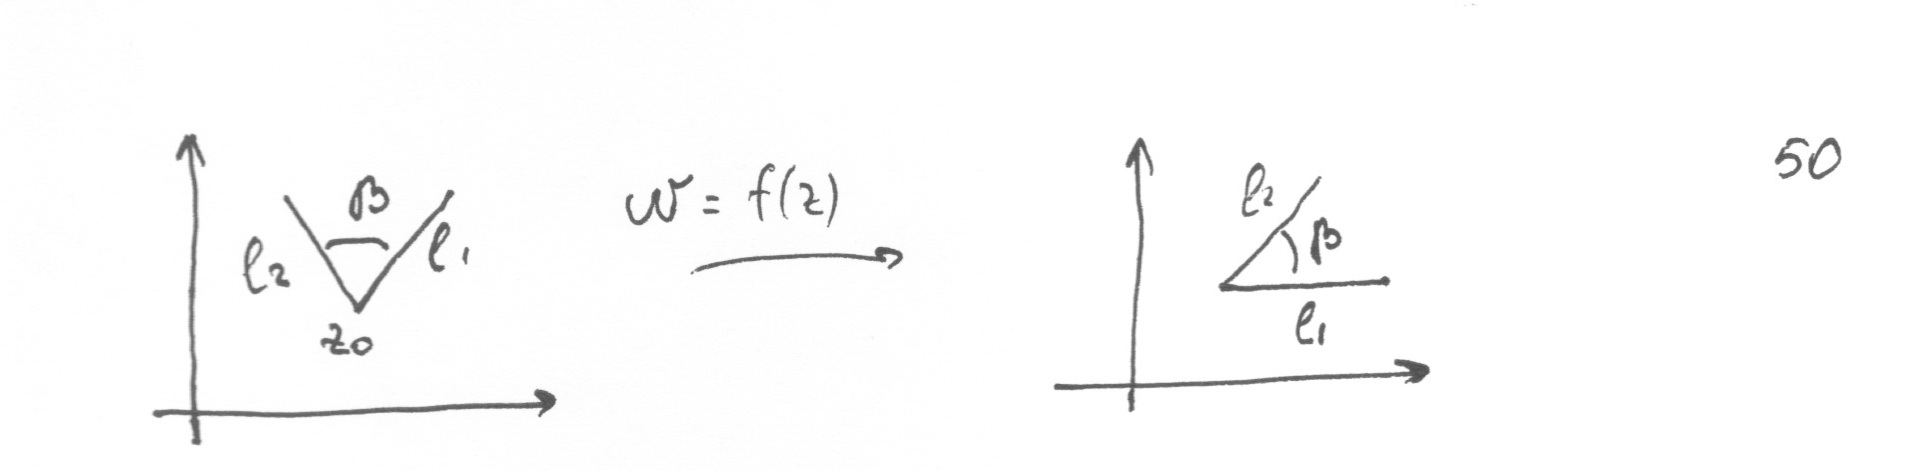 50
β
l2
l1
z0
w = f(z)
l2
β
l1